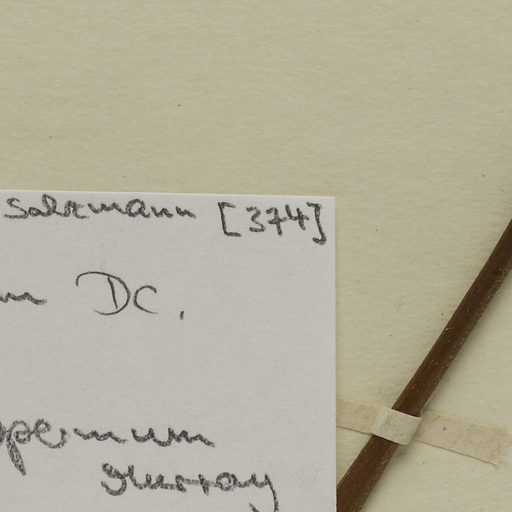 Salzmann [374]
m DC.
spermum
Murray